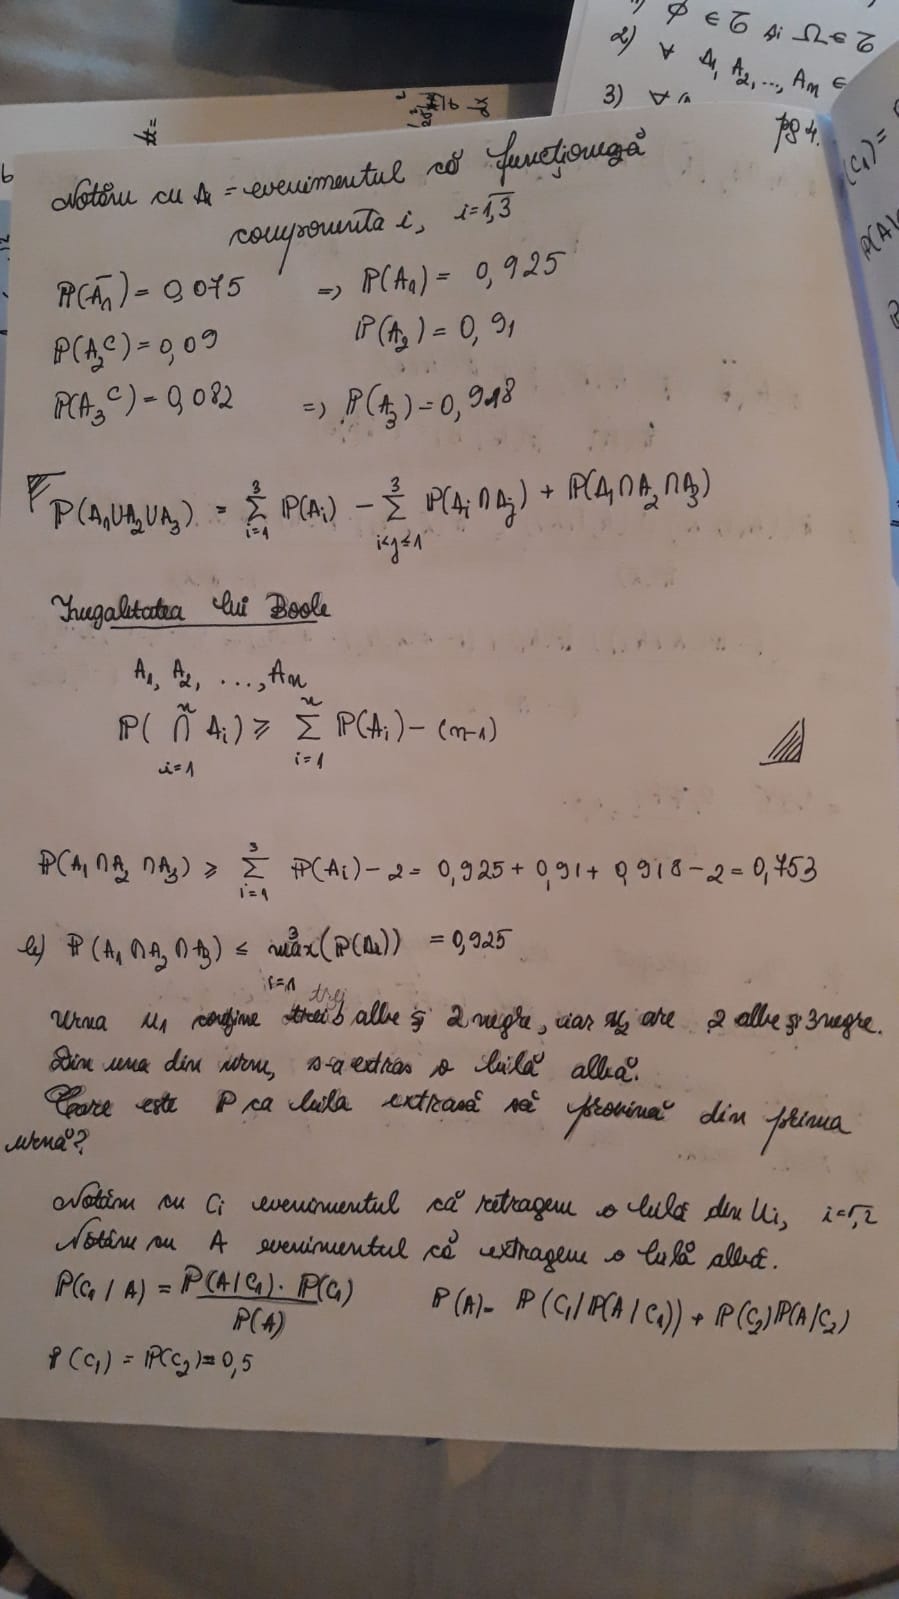 1) ∅ ∈ ℱ și Ω ∈ ℱ
2) ∀ A₁, A₂, ..., Aₙ ∈
3) ∀
pg 4.
Notăm cu Ai = evenimentul că funcționegă
componenta i, i=1,3
P(Ā₁) = 0,075 => P(A₁) = 0,925
P(A₂ᶜ) = 0,09 P(A₂) = 0,91
P(A₃ᶜ) = 0,082 => P(A₃) = 0,918
P(A₁∪A₂∪A₃) = Σ³ᵢ₌₁ P(Aᵢ) − Σ³ᵢ<ⱼ≤₁ P(Aᵢ∩Aⱼ) + P(A₁∩A₂∩A₃)
Inegalitatea lui Boole
A₁, A₂, ..., Aₙ
P(∩ⁿᵢ₌₁ Aᵢ) ≥ Σⁿᵢ₌₁ P(Aᵢ) − (n−1)
P(A₁∩A₂∩A₃) ≥ Σ³ᵢ₌₁ P(Aᵢ) − 2 = 0,925 + 0,91 + 0,918 − 2 = 0,753
b) P(A₁∩A₂∩A₃) ≤ max³ᵢ₌₁(P(Aᵢ)) = 0,925
Urna u₁ conține trei albe și 2 negre, iar u₂ are 2 albe și 3 negre.
Din una din urne, s-a extras o bilă albă.
Care este P ca bila extrasă să provină din prima
urnă?
Notăm cu Ci evenimentul că retragem o bilă din Ui, i=1,2
Notăm cu A evenimentul că extragem o bilă albă.
P(C₁/A) = P(A/C₁)·P(C₁) / P(A) P(A) = P(C₁/P(A/C₁)) + P(C₂)P(A/C₂)
P(C₁) = P(C₂) = 0,5